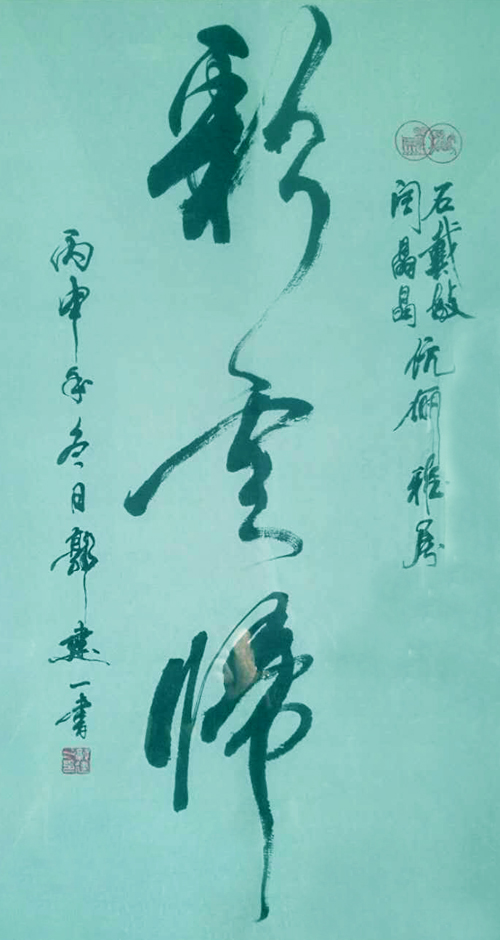 石戴敏
闫晶晶
伉俪雅属
彩云帰
丙申年冬日郭建一書